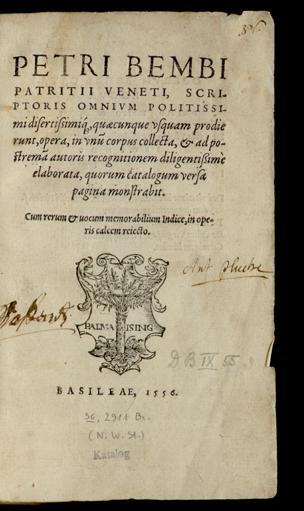 PETRI BEMBI
PATRITII VENETI, SCRI-
PTORIS OMNIVM POLITISSI-
mi disertissimíq́;, quæcunque vsquam prodie
runt, opera, in vnū corpus collecta, & ad po-
stremã autoris recognitionem diligentissimè
elaborata, quorum Catalogum versa
pagina monstrabit.
Cum rerum & uocum memorabilium Indice, in ope-
ris calcem reiecto.
PALMA ISING
BASILEAE, 1556.
DB IX 55.
(N. W. St.)
Katalog